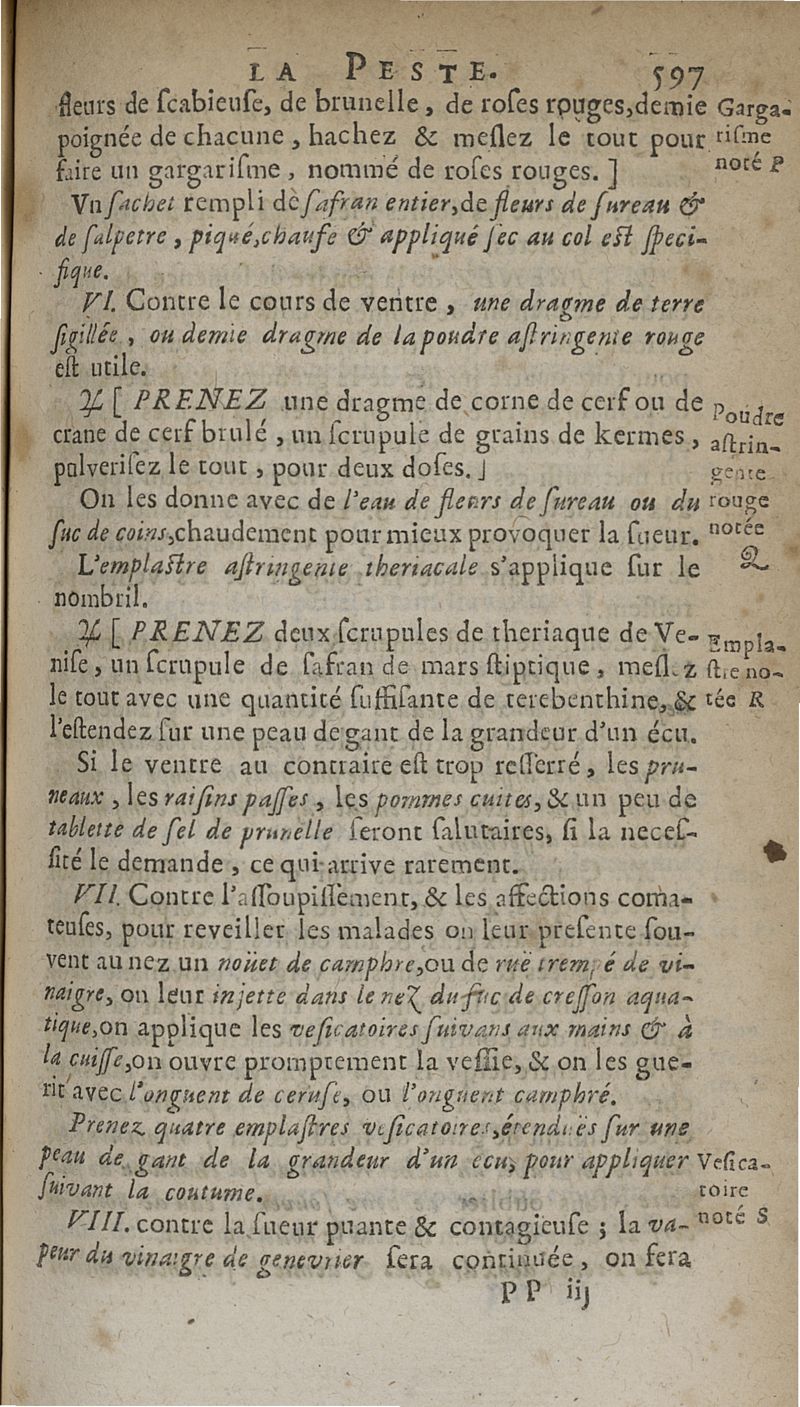 LA PESTE. 597
fleurs de ſcabieuſe, de brunelle, de roſes rouges, demie Garga-
poignée de chacune, hachez & meſlez le tout pour riſme
faire un gargariſme, nommé de roſes rouges. ] noté P
Vn ſachet rempli de ſafran entier, de fleurs de ſureau &
de ſalpetre, piqué, chaufe & appliqué ſec au col eſt ſpeci-
fique.
VI. Contre le cours de ventre, une dragme de terre
ſigillée, ou demie dragme de la poudre aſtringente rouge
eſt utile.
℞ [ PRENEZ une dragme de corne de cerf ou de Poudre
crane de cerf brulé, un ſcrupule de grains de kermes, aſtrin-
pulveriſez le tout, pour deux doſes. ] gente
On les donne avec de l'eau de fleurs de ſureau ou du rouge
ſuc de coins, chaudement pour mieux provoquer la ſueur. notée
L'emplaſtre aſtringente theriacale s'applique ſur le Q
nombril.
℞ [ PRENEZ deux ſcrupules de theriaque de Ve- Empla-
niſe, un ſcrupule de ſafran de mars ſtiptique, meſlez ſtre no-
le tout avec une quantité ſuffiſante de terebenthine, & tée R
l'eſtendez ſur une peau de gant de la grandeur d'un écu.
Si le ventre au contraire eſt trop reſſerré, les pru-
neaux, les raiſins paſſes, les pommes cuites, & un peu de
tablette de ſel de prunelle ſeront ſalutaires, ſi la neceſ-
ſité le demande, ce qui arrive rarement.
VII. Contre l'aſſoupiſſement, & les affections coma-
teuſes, pour reveiller les malades on leur preſente ſou-
vent au nez un noüet de camphre, ou de ruë trempé de vi-
naigre, on leur injette dans le nez du ſuc de creſſon aqua-
tique, on applique les veſicatoires ſuivans aux mains & à
la cuiſſe, on ouvre promptement la veſſie, & on les gue-
rit avec l'onguent de ceruſe, ou l'onguent camphré.
Prenez quatre emplaſtres veſicatoires, étenduës ſur une
peau de gant de la grandeur d'un écu, pour appliquer Veſica-
ſuivant la coutume. toire
VIII. contre la ſueur puante & contagieuſe ; la va- noté S
peur du vinaigre de genevrier ſera continuée, on fera
PP iij